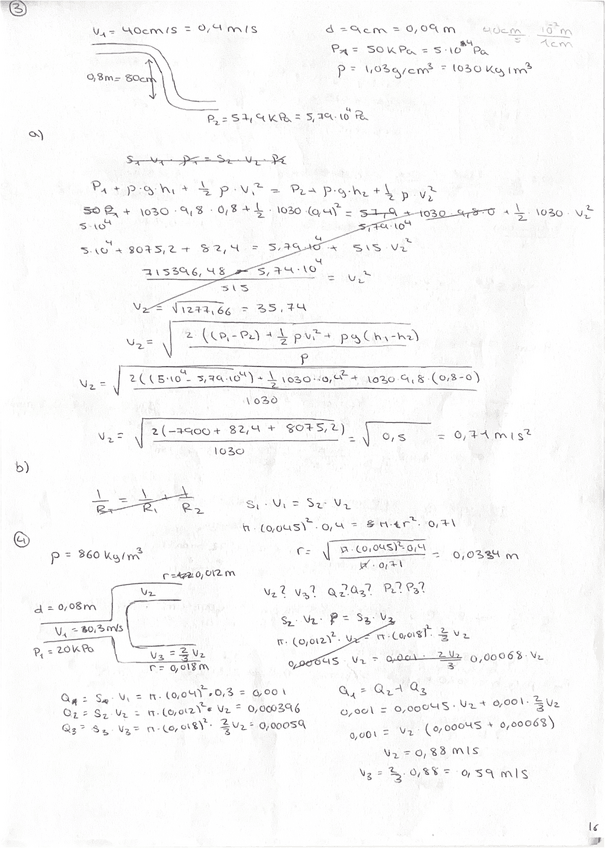 ③
V₁ = 40cm/s = 0,4 m/s
d = 9cm = 0,09 m
40cm = 10⁻² m / 1cm
P₁ = 50 KPa = 5·10⁴ Pa
ρ = 1,03 g/cm³ = 1030 Kg/m³
0,8m = 80cm
P₂ = 57,9 KPa = 5,79·10⁴ Pa
a)
S₁ · V₁ · ρ₁ = S₂ · V₂ · ρ₂
P₁ + ρ·g·h₁ + 1/2 ρ·V₁² = P₂ + ρ·g·h₂ + 1/2 ρ V₂²
50 P₁ + 1030 · 9,8 · 0,8 + 1/2 · 1030 (0,4)² = 57,9 + 1030 9,8·0 + 1/2 · 1030 · V₂²
5·10⁴ 5,79·10⁴
5·10⁴ + 8075,2 + 82,4 = 5,79·10⁴ + 515 V₂²
(715396,48 - 5,74·10⁴) / 515 = V₂²
V₂ = √1277,66 = 35,74
V₂ = √(2 ((P₁-P₂) + 1/2 ρV₁² + ρg(h₁-h₂)) / ρ)
V₂ = √(2((5·10⁴ - 5,79·10⁴) + 1/2 1030·0,4² + 1030 9,8·(0,8-0)) / 1030)
V₂ = √(2(-7900 + 82,4 + 8075,2) / 1030) = √0,5 = 0,71 m/s²
b)
1/R_T = 1/R₁ + 1/R₂
S₁ · V₁ = S₂ · V₂
π · (0,045)² · 0,4 = π · r² · 0,71
r = √(π · (0,045)² · 0,4 / π · 0,71) = 0,0334 m
④
ρ = 860 Kg/m³
r = 0,012 m
V₂
d = 0,08m
V₁ = 0,3 m/s
P₁ = 20 KPa
V₃ = 2/3 V₂
r = 0,018 m
V₂? V₃? Q₂? Q₃? P₂? P₃?
S₂ · V₂ · ρ = S₃ · V₃
π · (0,012)² · V₂ = π · (0,018)² · 2/3 V₂
0,00045 · V₂ = 0,001 · 2V₂/3 0,00068 · V₂
Q₁ = S₁ · V₁ = π · (0,04)² · 0,3 = 0,001
Q₂ = S₂ V₂ = π · (0,012)² · V₂ = 0,000396
Q₃ = S₃ · V₃ = π · (0,018)² · 2/3 V₂ = 0,00059
Q₁ = Q₂ + Q₃
0,001 = 0,00045 · V₂ + 0,001 · 2/3 V₂
0,001 = V₂ · (0,00045 + 0,00068)
V₂ = 0,88 m/s
V₃ = 2/3 · 0,88 = 0,59 m/s
16